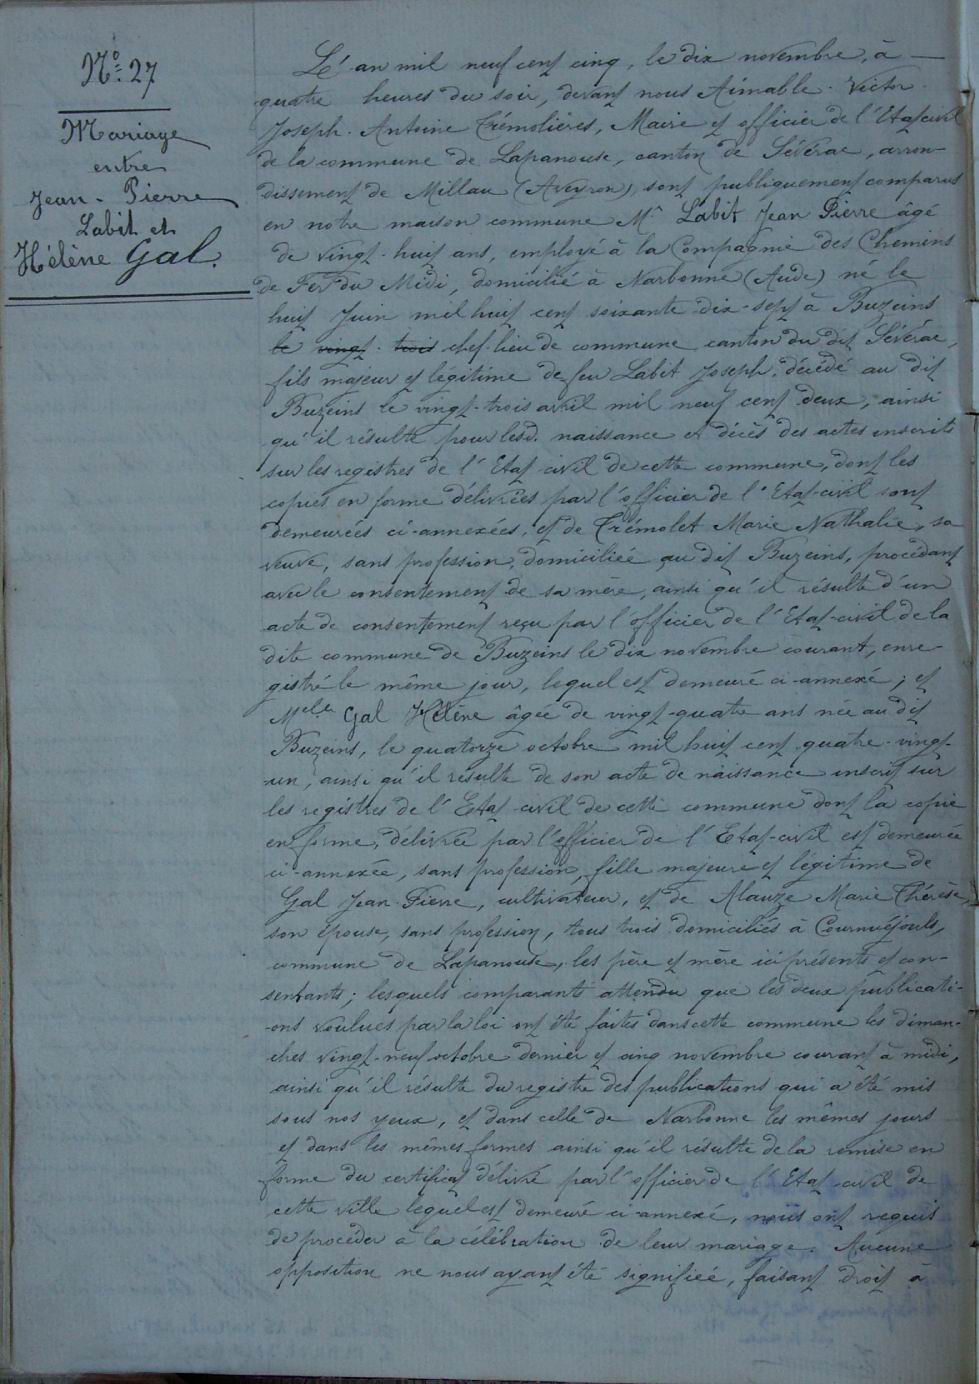 N° 27
Mariage
entre
Jean-Pierre
Labit et
Hélène Gal.
L'an mil neuf cent cinq, le dix novembre, à —
quatre heures du soir, devant nous Aimable-Victor-
Joseph-Antoine Trémolières, Maire et officier de l'Etat-civil
de la commune de Lapanouse, canton de Sévérac, arron-
dissement de Millau (Aveyron), sont publiquement comparus
en notre maison commune Mr Labit Jean Pierre âgé
de vingt-huit ans, employé à la Compagnie des Chemins
de Fer du Midi, domicilié à Narbonne (Aude) né le
huit Juin mil huit cent soixante-dix-sept à Buzeins
le vingt-trois chef-lieu de commune canton du dit Sévérac,
fils majeur et légitime de feu Labit Joseph, décédé au dit
Buzeins le vingt-trois avril mil neuf cent deux, ainsi
qu'il résulte pour lesd. naissance et décès des actes inscrits
sur les registres de l'Etat-civil de cette commune, dont les
copies en forme délivrées par l'officier de l'Etat-civil sont
demeurées ci-annexées, et de Trémolet Marie Nathalie, sa
veuve, sans profession, domiciliée au dit Buzeins, procédant
avec le consentement de sa mère, ainsi qu'il résulte d'un
acte de consentement reçu par l'officier de l'Etat-civil de la
dite commune de Buzeins le dix novembre courant, enre-
gistré le même jour, lequel est demeuré ci-annexé; et
Melle Gal Hélène âgée de vingt-quatre ans née au dit
Buzeins, le quatorze octobre mil huit cent quatre-vingt-
un, ainsi qu'il résulte de son acte de naissance inscrit sur
les registres de l'Etat-civil de cette commune dont la copie
en forme, délivrée par l'officier de l'Etat-civil est demeurée
ci-annexée, sans profession, fille majeure et légitime de
Gal Jean-Pierre, cultivateur, et de Alauze Marie Thérèse,
son épouse, sans profession, tous trois domiciliés à Cournuéjouls,
commune de Lapanouse, les père et mère ici présents et con-
sentants; lesquels comparants attendu que les deux publicati-
-ons voulues par la loi ont été faites dans cette commune les diman-
ches vingt-neuf octobre dernier et cinq novembre courant à midi,
ainsi qu'il résulte du registre des publications qui a été mis
sous nos yeux, et dans celle de Narbonne les mêmes jours
et dans les mêmes formes ainsi qu'il résulte de la remise en
forme du certificat délivré par l'officier de l'Etat-civil de
cette ville lequel est demeuré ci-annexé, nous ont requis
de procéder à la célébration de leur mariage. Aucune
opposition ne nous ayant été signifiée, faisant droit à